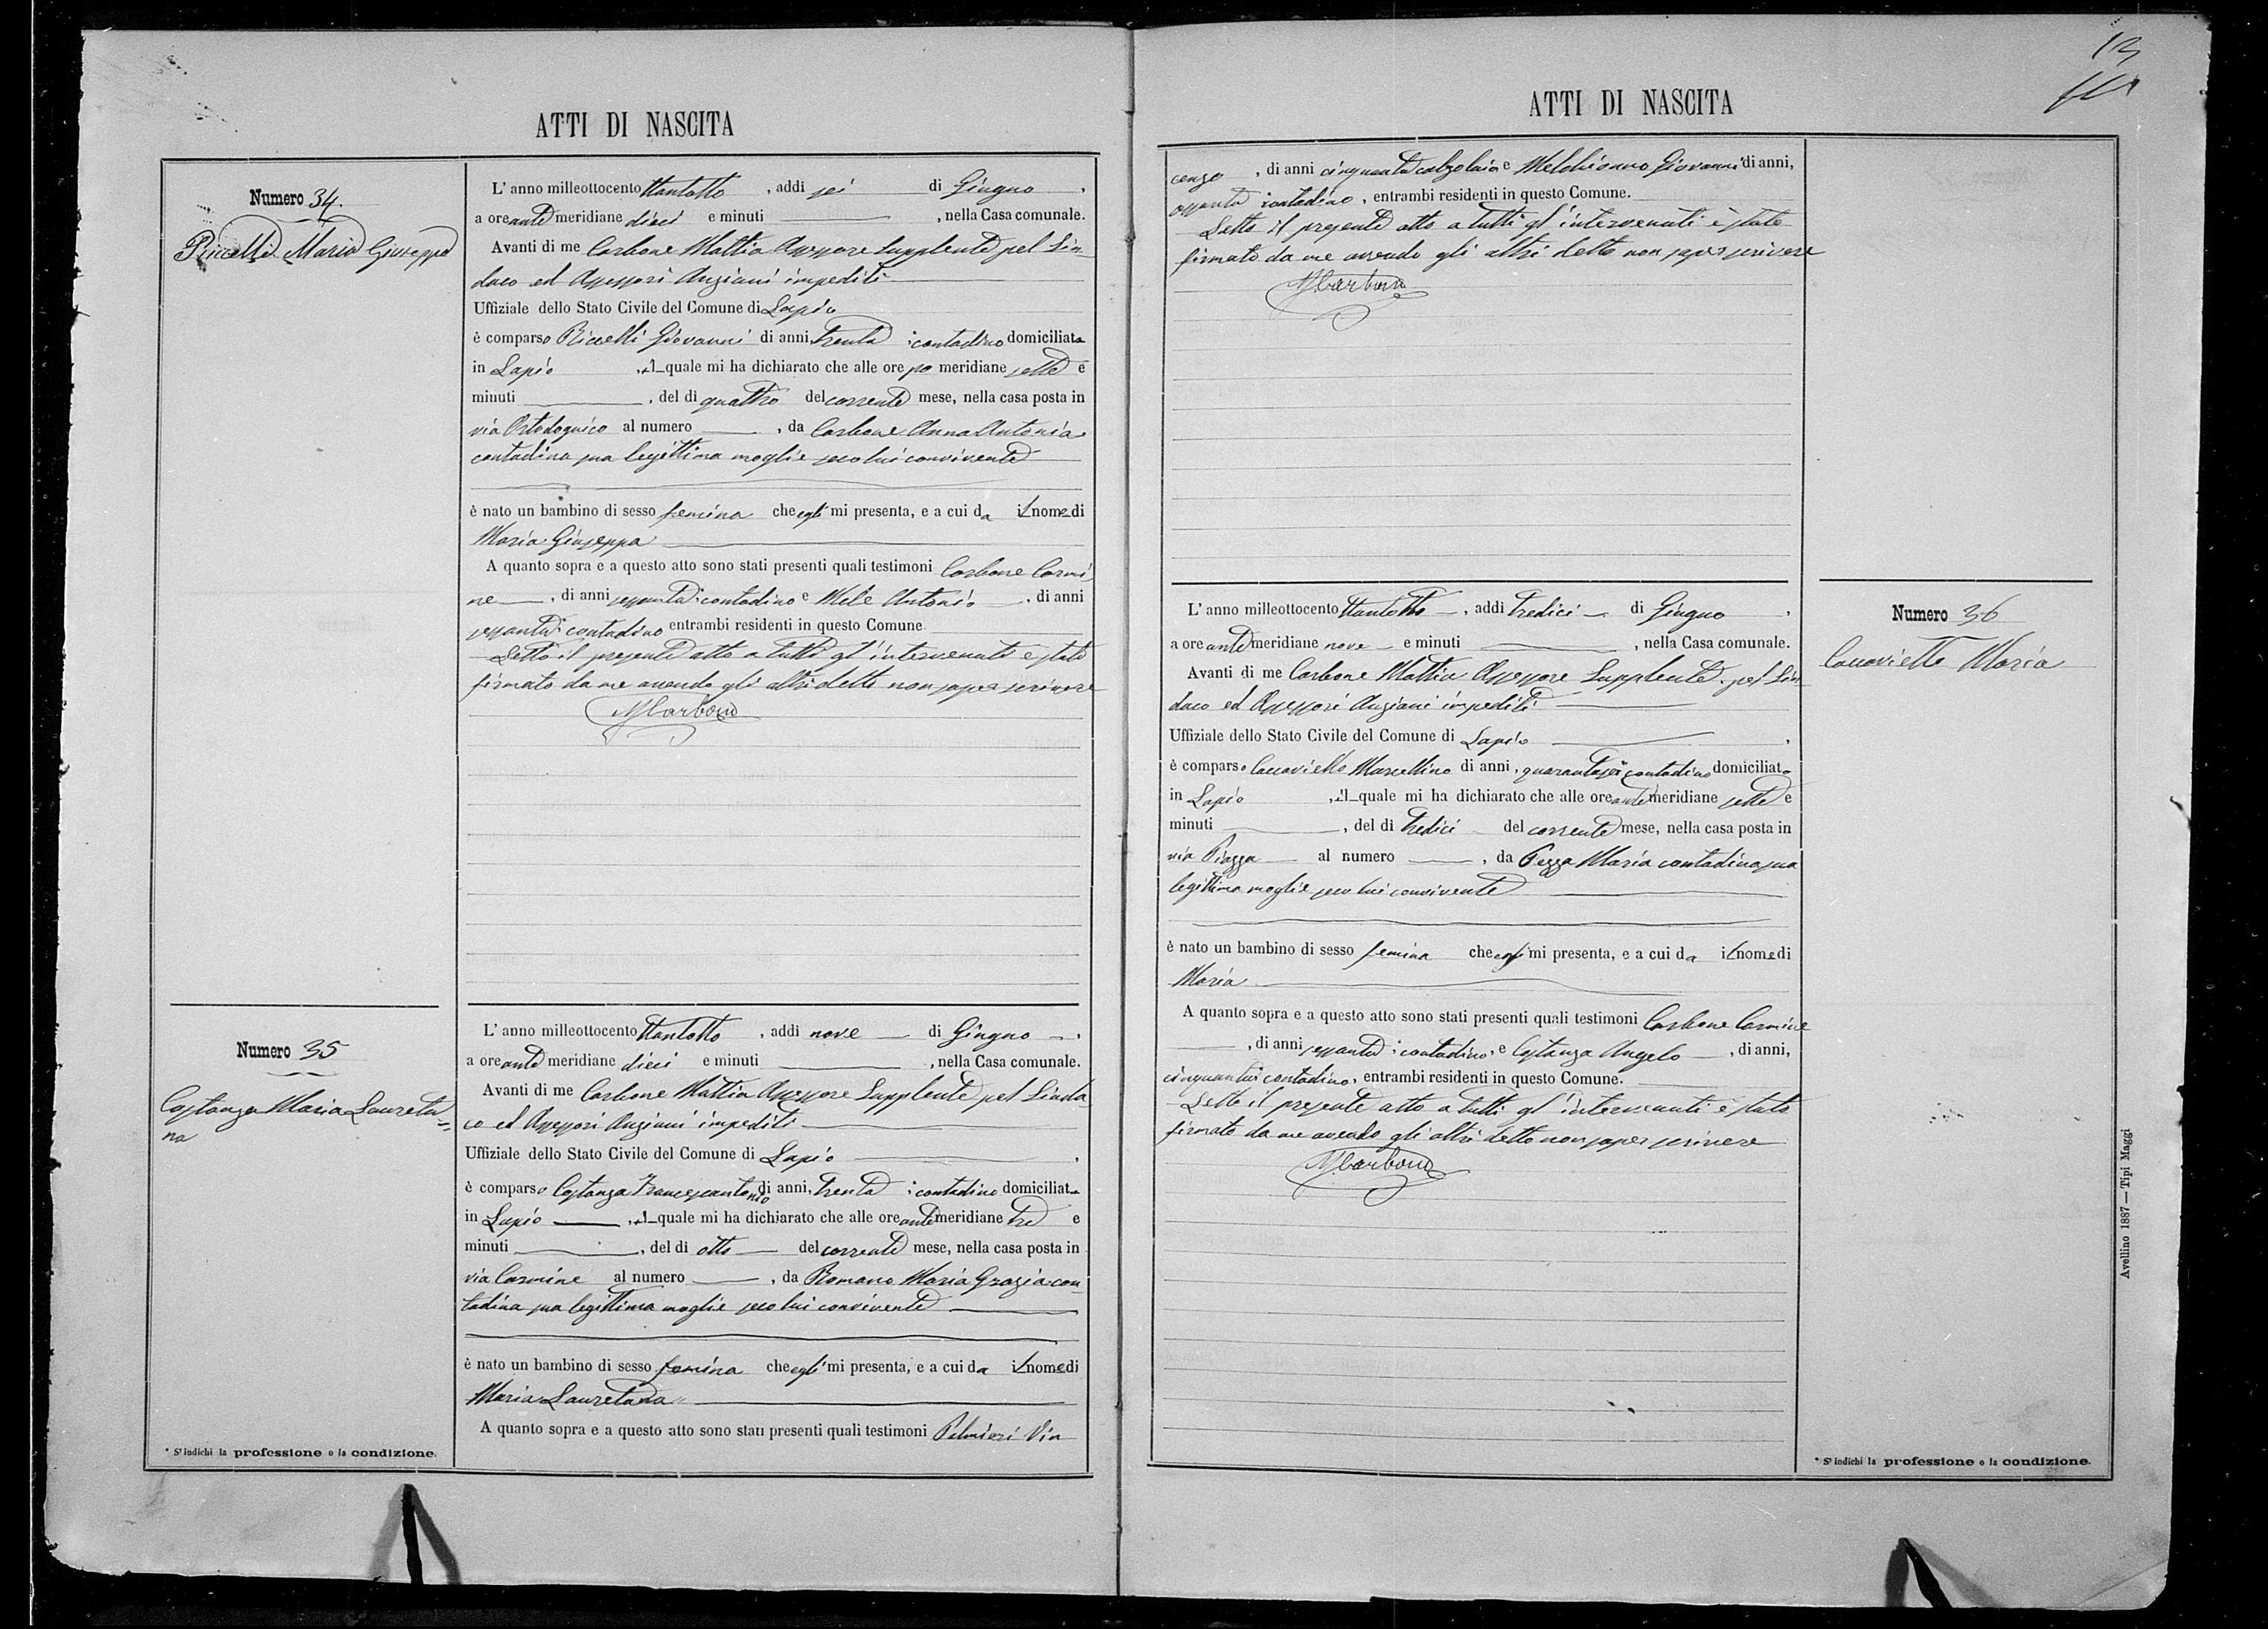 ATTI DI NASCITA
Numero 34.
Riccelli Maria Giuseppa
L'anno milleottocento ttantotto, addi sei di Giugno,
a ore ante meridiane dieci e minuti, nella Casa comunale.
Avanti di me Carbone Mattia Assessore Supplente pel Sin-
daco ed Assessori Anziani impediti
Uffiziale dello Stato Civile del Comune di Lapio
è comparso Riccelli Giovanni di anni trenta contadino domiciliato
in Lapio, il quale mi ha dichiarato che alle ore po meridiane sette e
minuti, del dì quattro del corrente mese, nella casa posta in
via al numero, da Carbone Anna Antonia
contadina sua legittima moglie seco lui convivente
è nato un bambino di sesso femina che egli mi presenta, e a cui da il nome di
Maria Giuseppa
A quanto sopra e a questo atto sono stati presenti quali testimoni Carbone Carmi
ne, di anni sessanta contadino e Mele Antonio, di anni
sessanta contadino entrambi residenti in questo Comune
Letto il presente atto a tutti gl'intervenuti è stato
firmato da me avendo gli altri detto non saper scrivere
MCarbone
Numero 35
Costanza Maria Laureta=
na
L'anno milleottocento ttantotto, addi nove di Giugno,
a ore ante meridiane dieci e minuti, nella Casa comunale.
Avanti di me Carbone Mattia Assessore Supplente pel Sinda
co ed Assessori Anziani impediti
Uffiziale dello Stato Civile del Comune di Lapio,
è comparso Costanza Francescantonio di anni, trenta contadino domiciliato
in Lapio, il quale mi ha dichiarato che alle ore ante meridiane tre e
minuti, del dì otto del corrente mese, nella casa posta in
via Carmine al numero, da Romano Maria Grazia con
tadina sua legittima moglie seco lui convivente
è nato un bambino di sesso femina che egli mi presenta, e a cui da il nome di
Maria Lauretana
A quanto sopra e a questo atto sono stati presenti quali testimoni Palmieri Vin
* S'indichi la professione o la condizione.
13
ATTI DI NASCITA
cenzo, di anni cinquanta calzolaio e Melchionno Giovanni di anni,
contadino, entrambi residenti in questo Comune.
Letto il presente atto a tutti gl'intervenuti è stato
firmato da me avendo gli altri detto non saper scrivere
MCarbone
Numero 36
Caccaviello Maria
L'anno milleottocento ttantotto, addi tredici di Giugno,
a ore ante meridiane nove e minuti, nella Casa comunale.
Avanti di me Carbone Mattia Assessore Supplente pel Sin
daco ed Assessori Anziani impediti
Uffiziale dello Stato Civile del Comune di Lapio,
è comparso Caccaviello Marcellino di anni, quarantasei contadino domiciliato
in Lapio, il quale mi ha dichiarato che alle ore ante meridiane sette e
minuti, del dì tredici del corrente mese, nella casa posta in
via Piazza al numero, da Pezza Maria contadina sua
legittima moglie seco lui convivente
è nato un bambino di sesso femina che egli mi presenta, e a cui da il nome di
Maria
A quanto sopra e a questo atto sono stati presenti quali testimoni Carbone Carmine
, di anni sessanta contadino, e Costanza Angelo, di anni,
contadino, entrambi residenti in questo Comune.
Letto il presente atto a tutti gl'intervenuti è stato
firmato da me avendo gli altri detto non saper scrivere
MCarbone
* S'indichi la professione o la condizione.
Avellino 1887 — Tipi Maggi